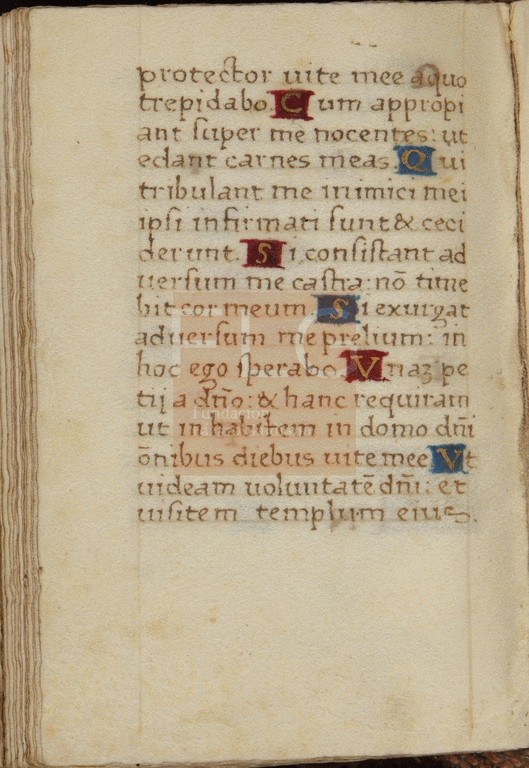 protector uite mee a quo
trepidabo. Cum appropi
ant super me nocentes: ut
edant carnes meas. Qui
tribulant me inimici mei
ipsi infirmati sunt & ceci
derunt. Si consistant ad
uersum me castra: nō time
bit cor meum. Si exurgat
aduersum me prelium: in
hoc ego sperabo. Unaʒ pe
tij a dño: & hanc requiram
ut inhabitem in domo dñi
ōnibus diebus uite mee Ut
uideam uoluntatē dñi: et
uisitem templum eius.
Fundación